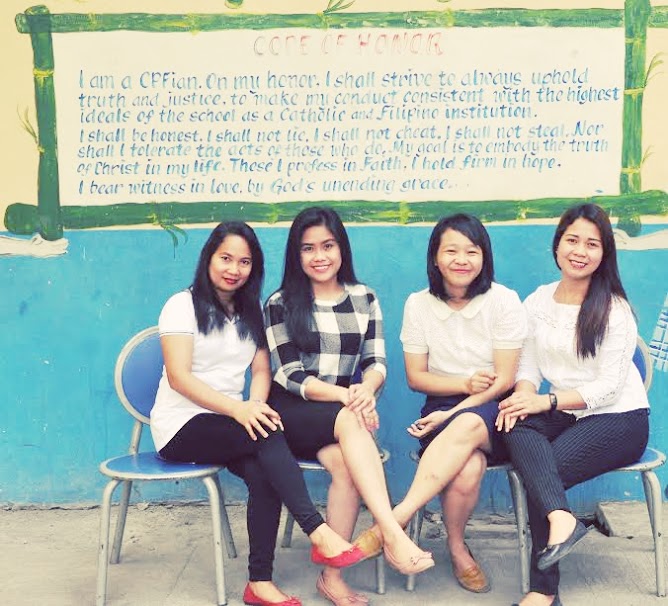 CODE OF HONOR
I am a CPFian. On my honor. I shall strive to always uphold
truth and justice, to make my conduct consistent with the highest
ideals of the school as a Catholic and Filipino institution.
I shall be honest. I shall not lie. I shall not cheat. I shall not steal. Nor
shall I tolerate the acts of those who do. My goal is to embody the truth
of Christ in my life. These I profess in Faith. I hold firm in hope.
I bear witness in love, by God's unending grace...